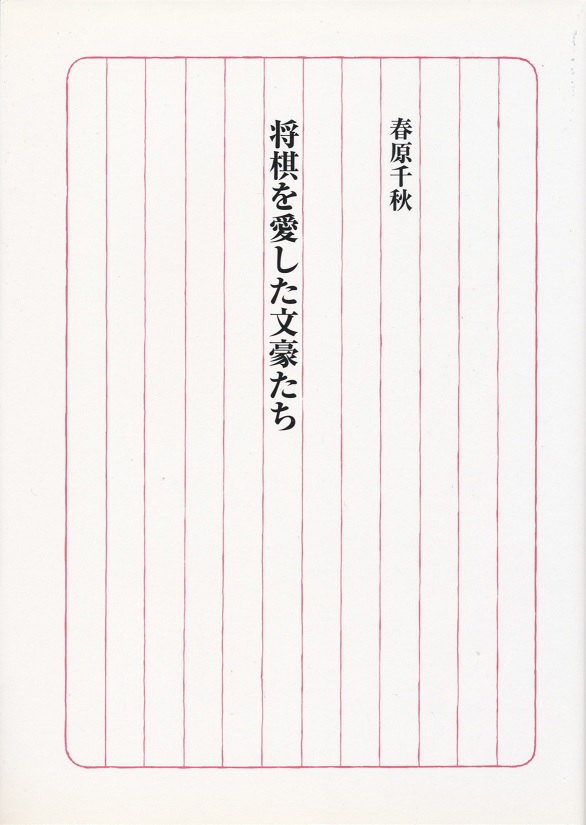 春原千秋
将棋を愛した文豪たち